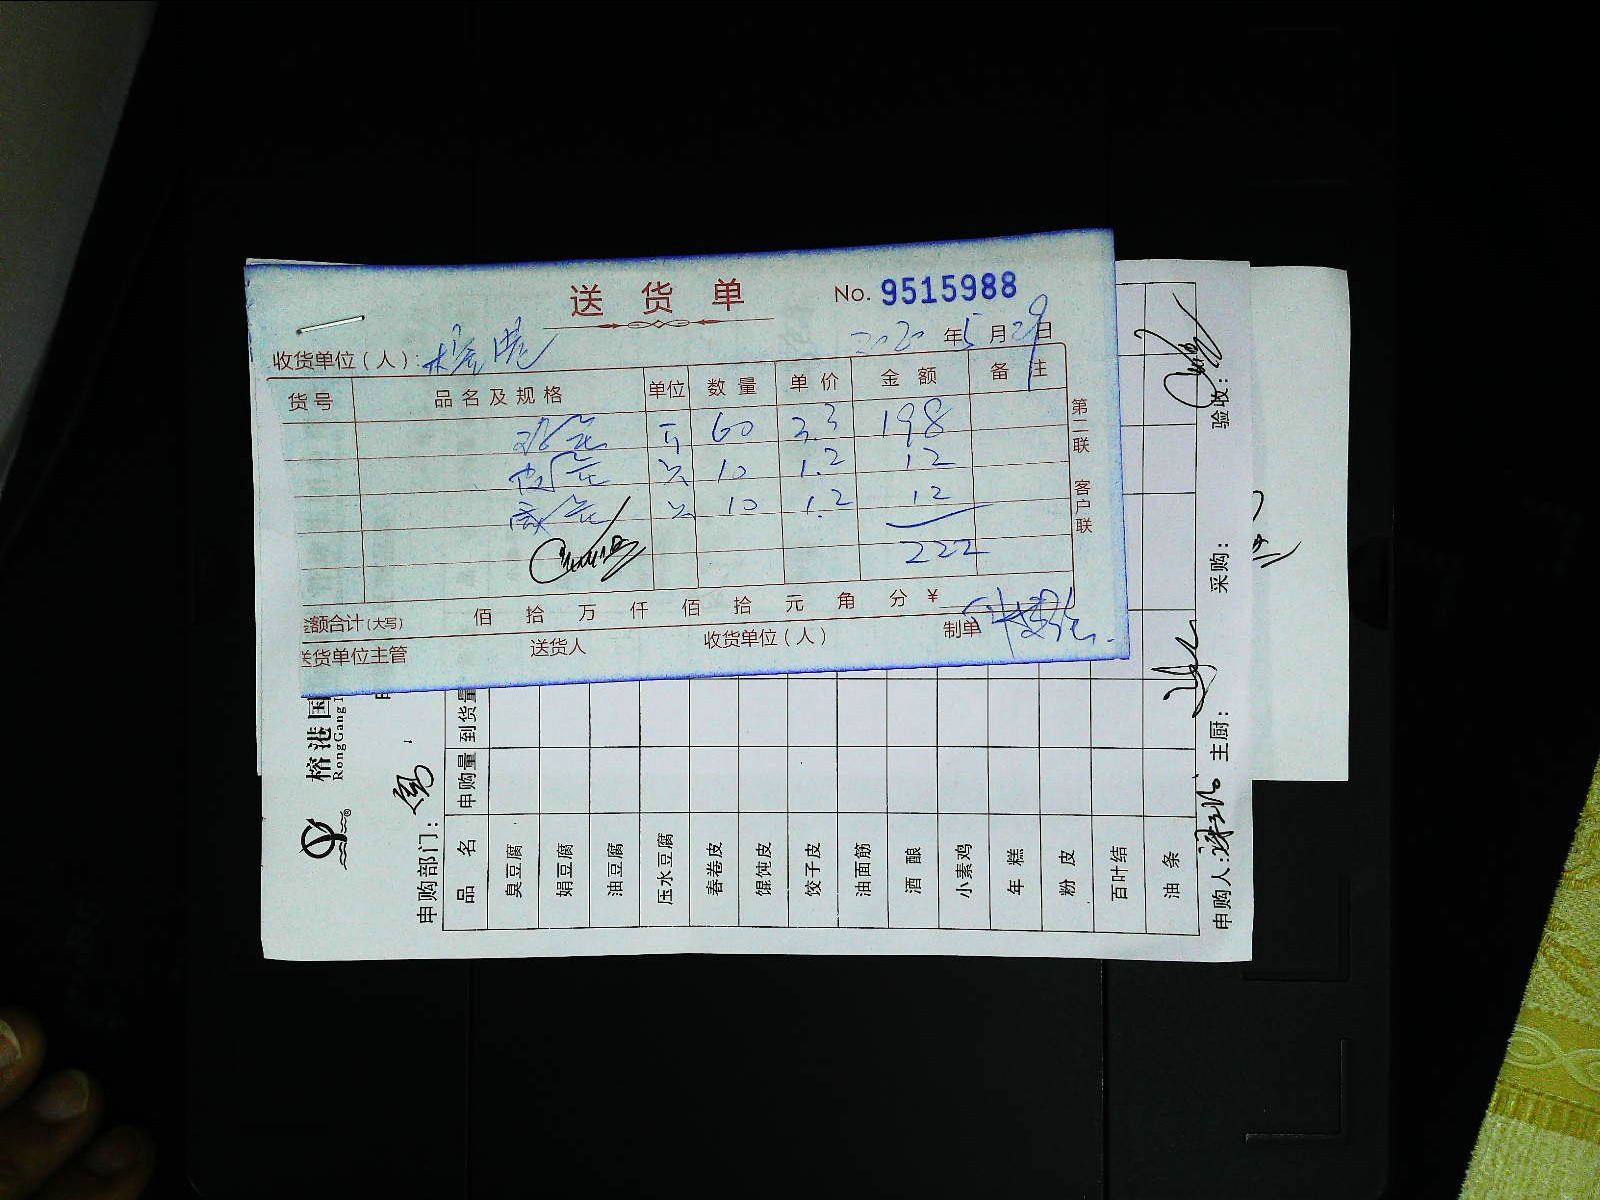 送货单
No. 9515988
收货单位(人): 榕港
2020 年 5 月 29 日
货号 品名及规格 单位 数量 单价 金额 备注
60 3.3 198
只 10 1.2 12
只 10 1.2 12
222
金额合计(大写) 佰 拾 万 仟 佰 拾 元 角 分 ¥
送货单位主管 送货人 收货单位(人) 制单
第二联 客户联
榕港国
RongGang
申购部门:
品名 申购量 到货量
臭豆腐
娟豆腐
油豆腐
压水豆腐
春卷皮
馄饨皮
饺子皮
油面筋
酒酿
小素鸡
年糕
粉皮
百叶结
油条
申购人: 主厨: 采购: 验收: